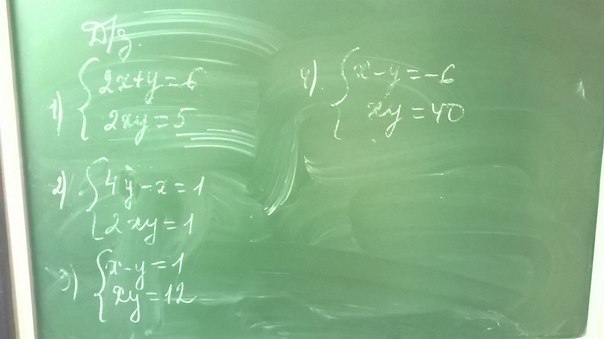 Д/з.
1) { 2x+y=6
2xy=5
2) { 4y-x=1
2xy=1
3) { x-y=1
xy=12
4). { x-y=-6
xy=40